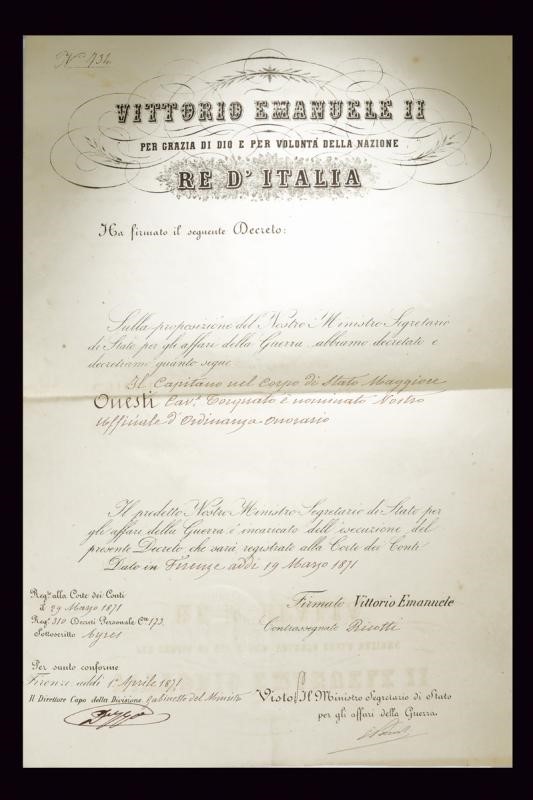 N° 734
VITTORIO EMANUELE II
PER GRAZIA DI DIO E PER VOLONTÀ DELLA NAZIONE
RE D'ITALIA
Ha firmato il seguente Decreto:
Sulla proposizione del Nostro Ministro Segretario
di Stato per gli affari della Guerra abbiamo decretato e
decretiamo quanto segue:
Il Capitano nel Corpo di Stato Maggiore
Onesti Cav. Torquato è nominato Nostro
Uffiziale d'Ordinanza onorario
Il predetto Nostro Ministro Segretario di Stato per
gli affari della Guerra è incaricato dell'esecuzione del
presente Decreto che sarà registrato alla Corte dei Conti.
Dato in Firenze addì 19 Marzo 1871
Firmato Vittorio Emanuele
Contrassegnato Ricotti
Visto: Il Ministro Segretario di Stato
per gli affari della Guerra.
Reg.to alla Corte dei Conti
il 29 Marzo 1871
Reg.° 310 Decreti Personale C.te 173
Sottoscritto Ayres
Per sunto conforme
Firenze addì 1° Aprile 1871
Il Direttore Capo della Divisione Gabinetto del Ministro